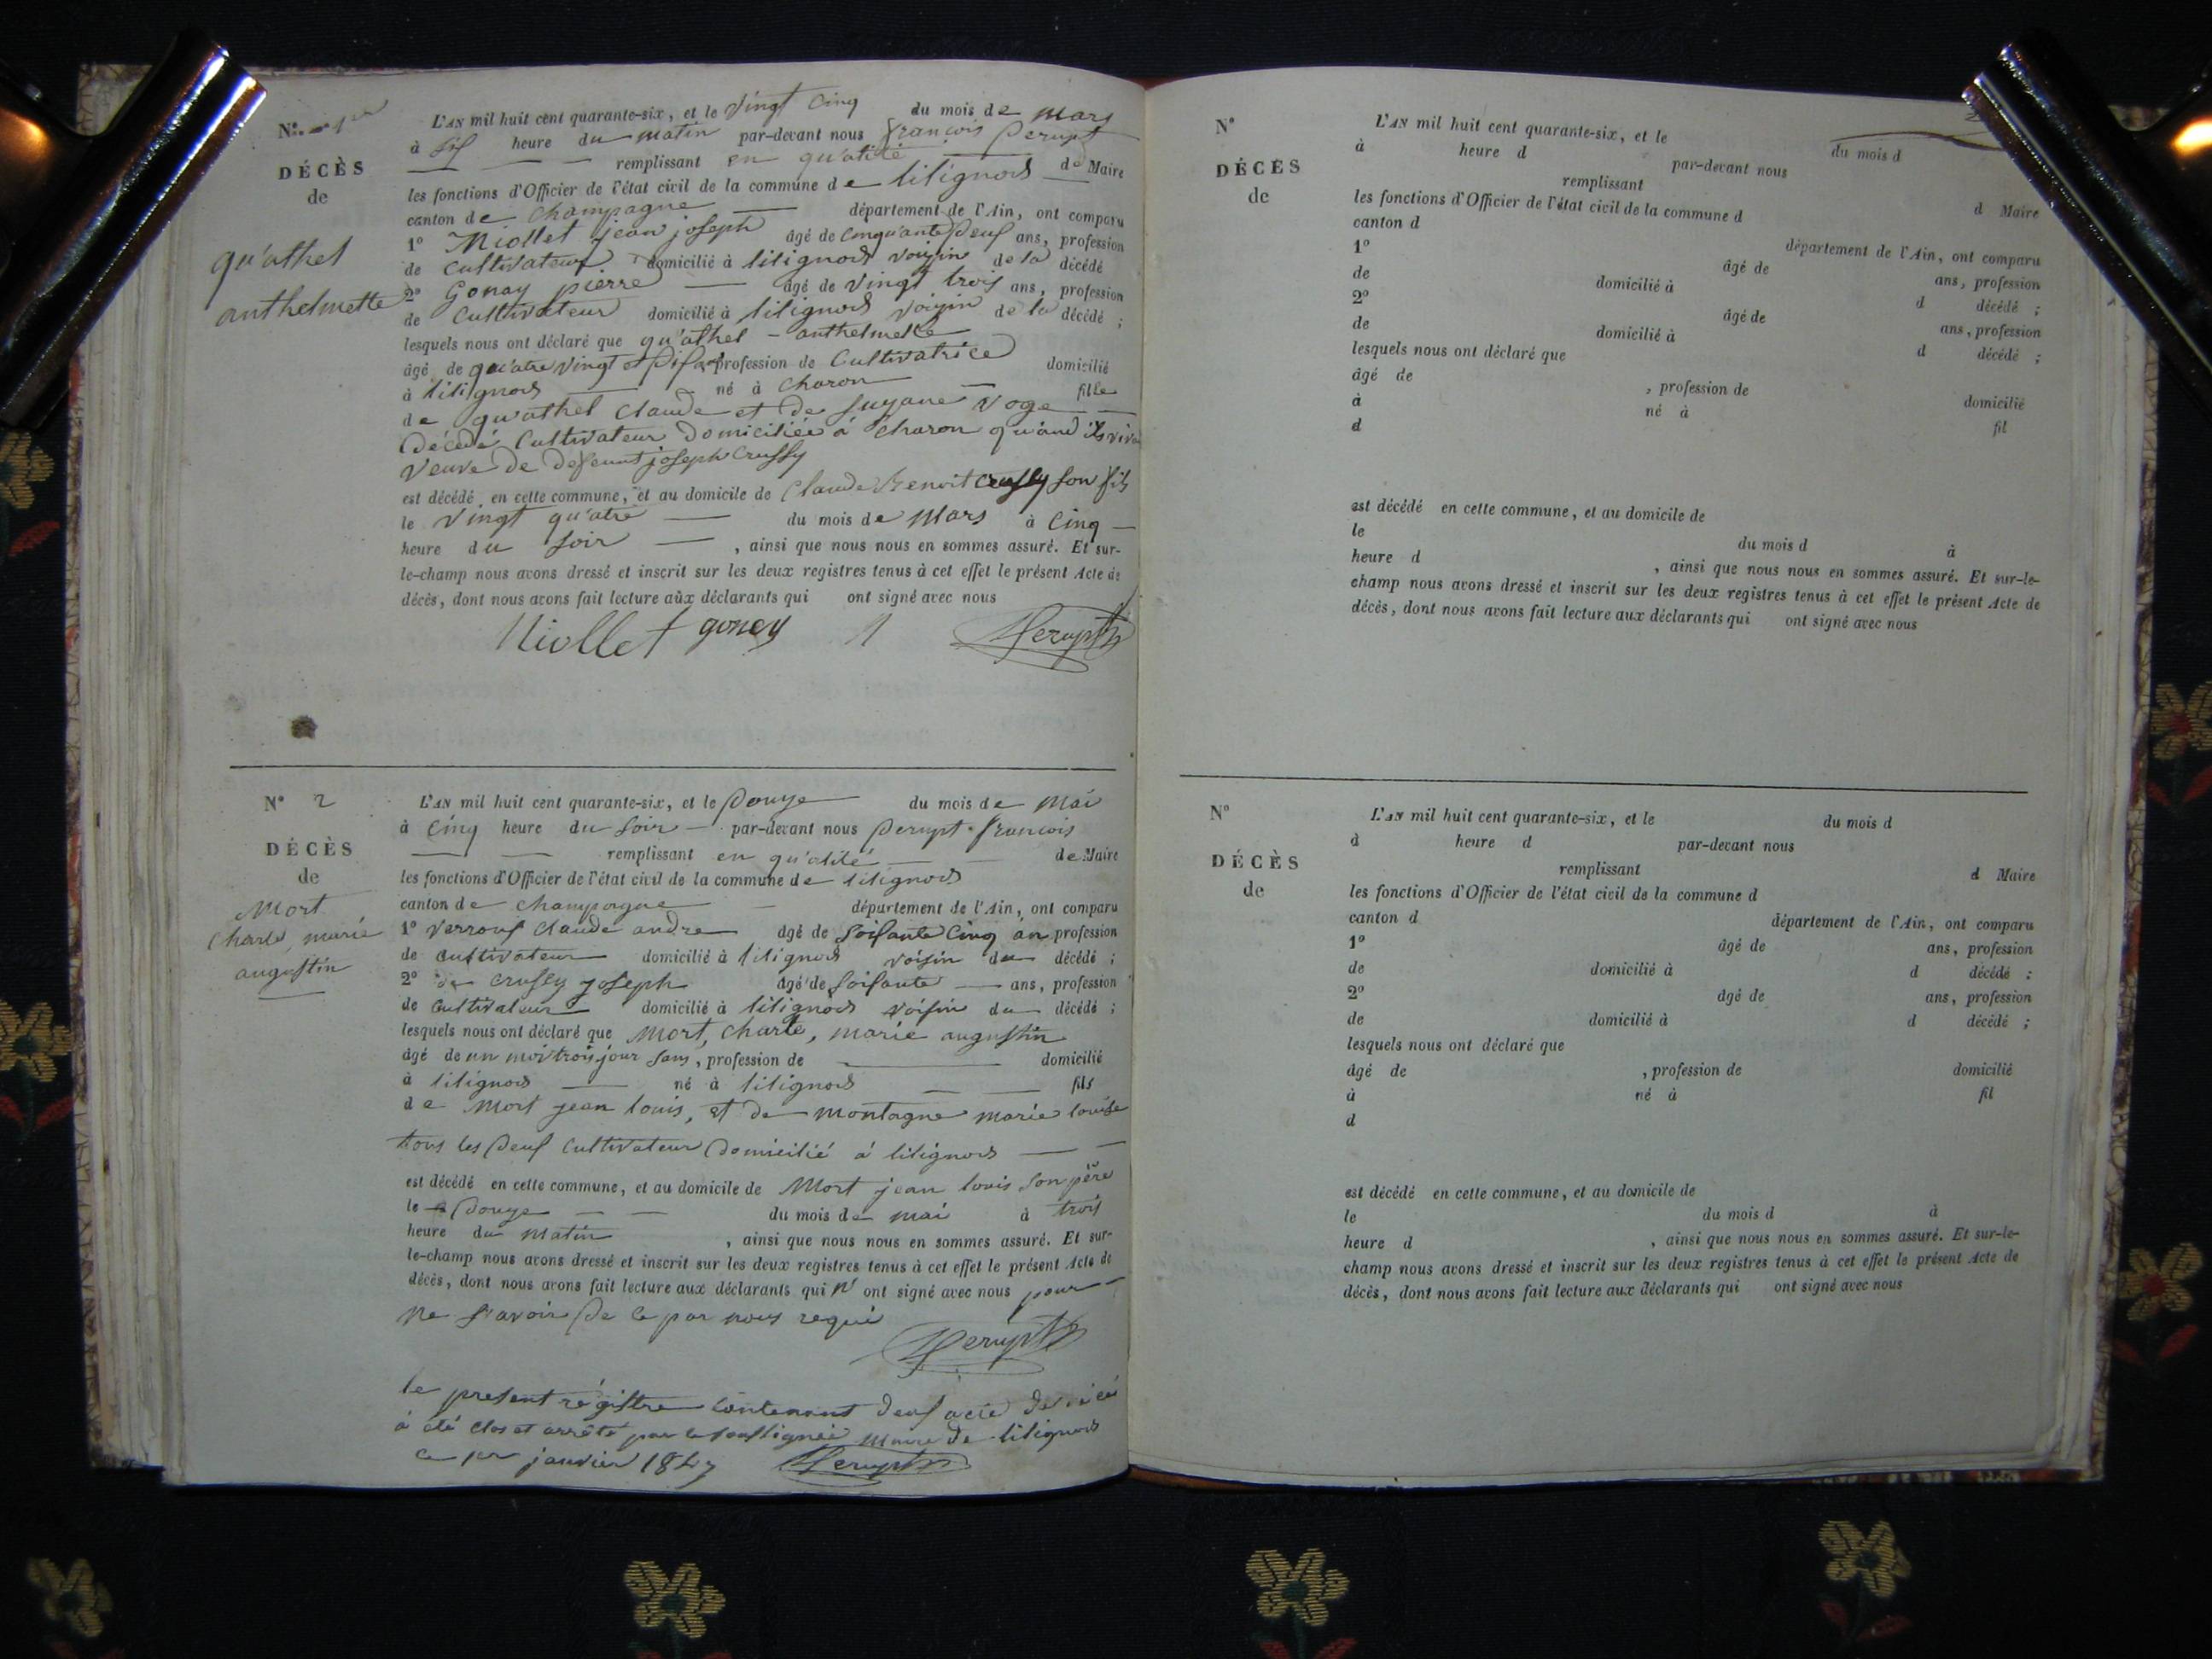 N° 1er
DÉCÈS
de
qu'athel
anthelmette
L'AN mil huit cent quarante-six, et le vingt cinq du mois de mars
à six heure du matin par-devant nous françois Perupt
remplissant en qu'alité de Maire
les fonctions d'Officier de l'état civil de la commune de lilignods
canton de Champagne département de l'Ain, ont comparu
1° Niollet jean joseph âgé de cinquante deux ans, profession
de cultivateur domicilié à lilignods voisin de la décédé
2° Gonay pierre âgé de vingt trois ans, profession
de Cultivateur domicilié à lilignods voisin de la décédé ;
lesquels nous ont déclaré que qu'athel - anthelmette
âgé de quatre vingt et dix profession de Cultivatrice domicilié
à lilignods né à Charon fille
de qu'athel Claude et de Suzane Voge
Décédé Cultivateur Domiciliée à Charon qu'and ils
veuve de defeunt joseph Crussy
est décédé en cette commune, et au domicile de Claude Benoit Crussy son fils
le vingt qu'atre du mois de Mars à Cinq
heure du soir , ainsi que nous nous en sommes assuré. Et sur-
le-champ nous avons dressé et inscrit sur les deux registres tenus à cet effet le présent Acte de
décès, dont nous avons fait lecture aux déclarants qui ont signé avec nous
Niollet gonay Perupt
N° 2
DÉCÈS
de
Mort
Charle, marie
augustin
L'AN mil huit cent quarante-six, et le Douze du mois de Mai
à Cinq heure du soir par-devant nous Perupt françois
remplissant en qu'alité de Maire
les fonctions d'Officier de l'état civil de la commune de lilignods
canton de Champagne département de l'Ain, ont comparu
1° Verroux Claude andre âgé de soisante Cinq an profession
de Cultivateur domicilié à lilignods voisin du décédé ;
2° de Crussy joseph âgé de soisante ans, profession
de Cultivateur domicilié à lilignods voisin du décédé ;
lesquels nous ont déclaré que Mort, Charle, marie augustin
âgé de un moi trois jour sans, profession de domicilié
à lilignods né à lilignods fils
de Mort jean louis, et de montagne marie louise
tous les Deux Cultivateur Domicilié à lilignods
est décédé en cette commune, et au domicile de Mort jean louis son père
le Douze du mois de mai à trois
heure du matin , ainsi que nous nous en sommes assuré. Et sur-
le-champ nous avons dressé et inscrit sur les deux registres tenus à cet effet le présent Acte de
décès, dont nous avons fait lecture aux déclarants qui n' ont signé avec nous pour
ne savoir De ce par nous requi
Perupt
le present régistre Contenant deux acte de
à été clos et arrêté par le soussignéé maire de lilignods
ce 1er janvier 1847 Perupt
N°
DÉCÈS
de
L'AN mil huit cent quarante-six, et le du mois d
à heure d par-devant nous
remplissant d Maire
les fonctions d'Officier de l'état civil de la commune d
canton d département de l'Ain, ont comparu
1° âgé de ans, profession
de domicilié à d décédé ;
2° âgé de ans, profession
de domicilié à d décédé ;
lesquels nous ont déclaré que
âgé de , profession de domicilié
à né à fil
d
est décédé en cette commune, et au domicile de
le du mois d à
heure d , ainsi que nous nous en sommes assuré. Et sur-le-
champ nous avons dressé et inscrit sur les deux registres tenus à cet effet le présent Acte de
décès, dont nous avons fait lecture aux déclarants qui ont signé avec nous
N°
DÉCÈS
de
L'AN mil huit cent quarante-six, et le du mois d
à heure d par-devant nous
remplissant d Maire
les fonctions d'Officier de l'état civil de la commune d
canton d département de l'Ain, ont comparu
1° âgé de ans, profession
de domicilié à d décédé :
2° âgé de ans, profession
de domicilié à d décédé ;
lesquels nous ont déclaré que
âgé de , profession de domicilié
à né à fil
d
est décédé en cette commune, et au domicile de
le du mois d à
heure d , ainsi que nous nous en sommes assuré. Et sur-le-
champ nous avons dressé et inscrit sur les deux registres tenus à cet effet le présent Acte de
décès, dont nous avons fait lecture aux déclarants qui ont signé avec nous